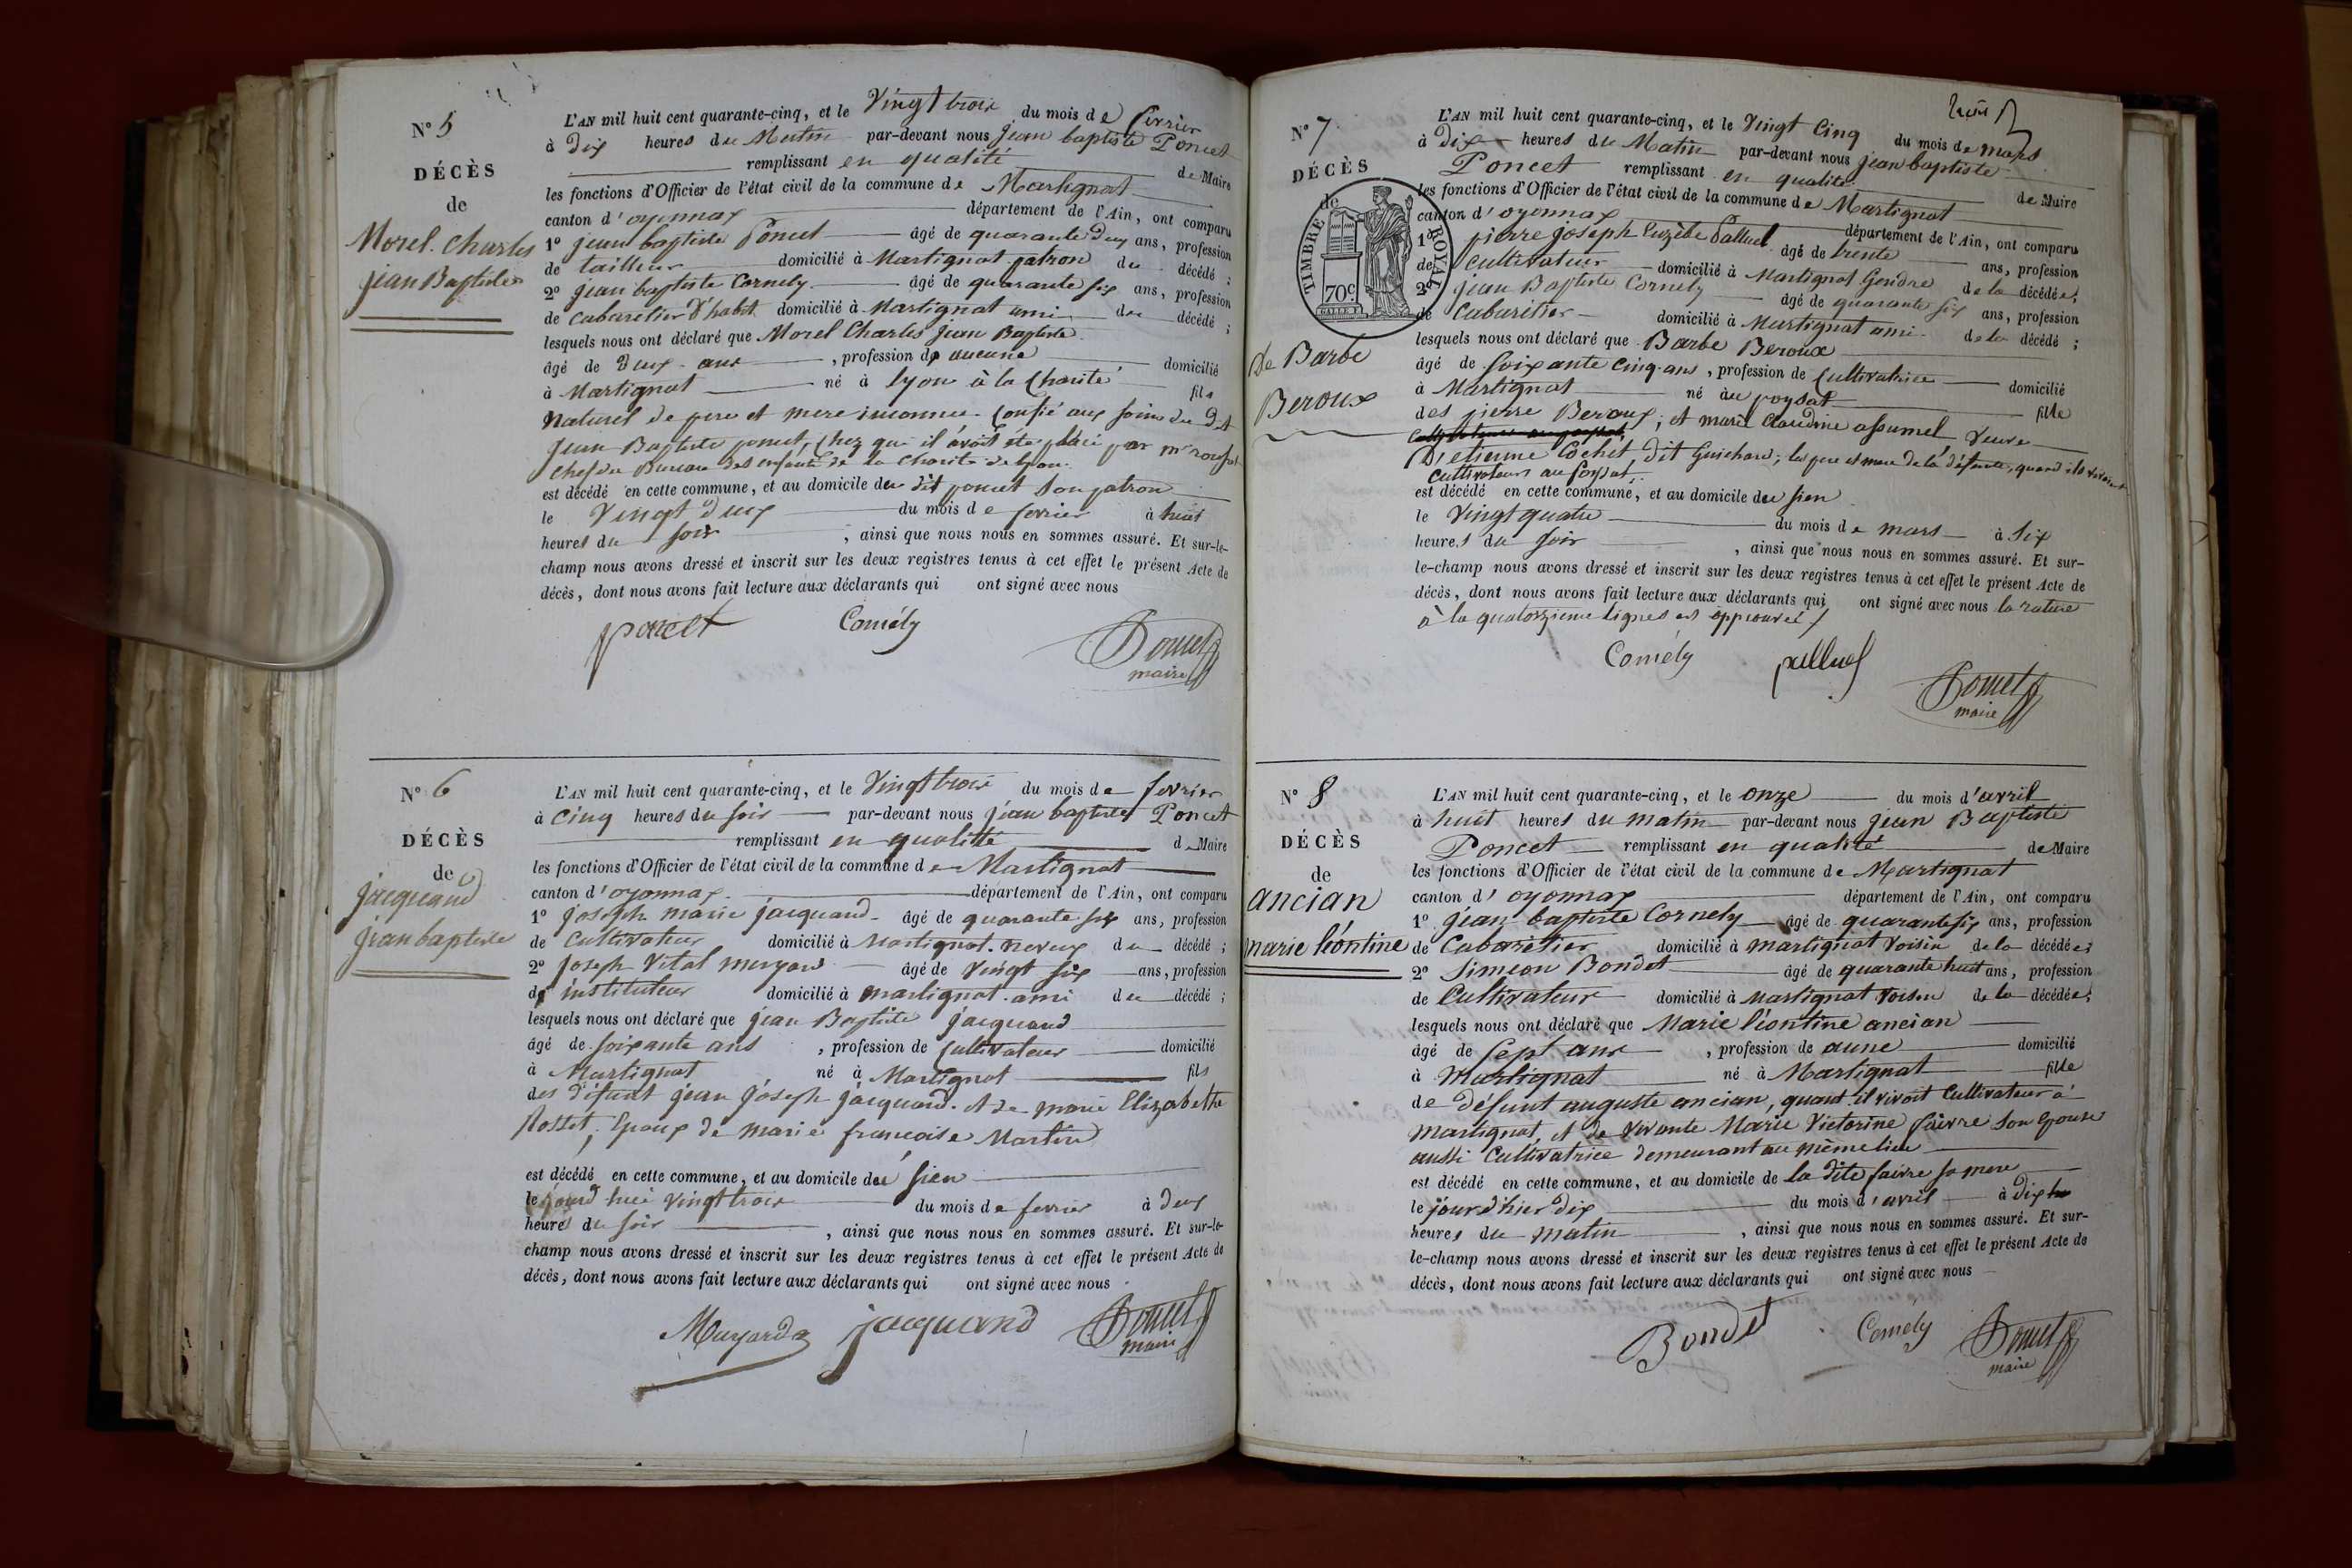 N° 5
DÉCÈS
de
Morel. Charles
jean Baptiste
L'AN mil huit cent quarante-cinq, et le Vingt trois du mois de fevrier
à dix heures du Matin par-devant nous jean baptiste Poncet
remplissant en qualité de Maire
les fonctions d'Officier de l'état civil de la commune de Martignat
canton d'oyonnax département de l'Ain, ont comparu
1° jean baptiste Poncet âgé de quarante deux ans, profession
de tailleur domicilié à Martignat patron du décédé ;
2° jean baptiste Cornely âgé de quarante six ans, profession
de cabaretier d'habit domicilié à Martignat ami du décédé ;
lesquels nous ont déclaré que Morel Charles Jean Baptiste
âgé de deux ans , profession de aucune domicilié
à Martignat né à lyon à la Charité fils
naturel de pere et mere inconnu. Confié aux soins du dit
Jean Baptiste poncet, chez qui il avoit été placé par mr
chef du Bureau des enfants de la charité de lyon.
est décédé en cette commune, et au domicile du dit poncet son patron
le Vingt deux du mois de fevrier à huit
heures du soir , ainsi que nous nous en sommes assuré. Et sur-le-
champ nous avons dressé et inscrit sur les deux registres tenus à cet effet le présent Acte de
décès, dont nous avons fait lecture aux déclarants qui ont signé avec nous
poncet Cornély Poncet
maire
N° 6
DÉCÈS
de
jacquand
jean baptiste
L'AN mil huit cent quarante-cinq, et le Vingt trois du mois de fevrier
à cinq heures du soir par-devant nous jean baptiste Poncet
remplissant en qualité de Maire
les fonctions d'Officier de l'état civil de la commune de Martignat
canton d'oyonnax département de l'Ain, ont comparu
1° joseph marie jacquand âgé de quarante six ans, profession
de Cultivateur domicilié à Martignat. neveux du décédé ;
2° joseph Vital muyard âgé de vingt six ans, profession
de instituteur domicilié à martignat. ami du décédé ;
lesquels nous ont déclaré que jean Baptiste jacquand
âgé de soixante ans , profession de Cultivateur domicilié
à Martignat né à Martignat fils
des défunt jean joseph jacquand. et de marie Elizabethe
Rosset, Epoux de marie françoise Martin
est décédé en cette commune, et au domicile du sien
le jourd'hui vingt trois du mois de fevrier à deux
heures du soir , ainsi que nous nous en sommes assuré. Et sur-le-
champ nous avons dressé et inscrit sur les deux registres tenus à cet effet le présent Acte de
décès, dont nous avons fait lecture aux déclarants qui ont signé avec nous
Muyard jacquand Poncet
maire
trois
N° 7
DÉCÈS
de
TIMBRE ROYAL
70c
De Barbe
Beroux
L'AN mil huit cent quarante-cinq, et le Vingt Cinq du mois de mars
à dix heures du Matin par-devant nous jean baptiste
Poncet remplissant en qualité de Maire
les fonctions d'Officier de l'état civil de la commune de Martignat
canton d'oyonnax département de l'Ain, ont comparu
1° pierre joseph Euzèbe Palluel âgé de trente ans, profession
de Cultivateur domicilié à Martignat Gendre de la décédée;
2° jean Baptiste Cornely âgé de quarante six ans, profession
de Cabaretier domicilié à Martignat ami de la décédé ;
lesquels nous ont déclaré que Barbe Beroux
âgé de soixante cinq ans , profession de Cultivatrice domicilié
à Martignat né au poysat fille
des pierre Beroux, et marie Claudine assumel Veuve
D'etienne Cochet, dit Guichard; les pere et mere de la défunte, quand ils vivoient
cultivateurs au poysat.
est décédé en cette commune, et au domicile du sien
le Vingt quatre du mois de mars à six
heures du soir , ainsi que nous nous en sommes assuré. Et sur-
le-champ nous avons dressé et inscrit sur les deux registres tenus à cet effet le présent Acte de
décès, dont nous avons fait lecture aux déclarants qui ont signé avec nous la rature
à la quatorzieme lignes est approuvée
Cornély palluel Poncet
maire
N° 8
DÉCÈS
de
ancian
marie léontine
L'AN mil huit cent quarante-cinq, et le onze du mois d'avril
à huit heures du matin par-devant nous jean Baptiste
Poncet remplissant en qualité de Maire
les fonctions d'Officier de l'état civil de la commune de Martignat
canton d'oyonnax département de l'Ain, ont comparu
1° jean baptiste Cornely âgé de quarante six ans, profession
de Cabaretier domicilié à martignat Voisin de la décédée;
2° Simeon Bondet âgé de quarante huit ans, profession
de Cultivateur domicilié à Martignat Voisin de la décédée;
lesquels nous ont déclaré que Marie léontine ancian
âgé de Sept ans , profession de aune domicilié
à Martignat né à Martignat fille
de défunt auguste ancian, quant il vivoit Cultivateur à
Martignat, et de vivante Marie Victorine faivre son Epouse
aussi Cultivatrice demeurant au même lieu
est décédé en cette commune, et au domicile de la dite faivre sa mere
le jourd'hier dix du mois d'avril à dix
heures du matin , ainsi que nous nous en sommes assuré. Et sur-
le-champ nous avons dressé et inscrit sur les deux registres tenus à cet effet le présent Acte de
décès, dont nous avons fait lecture aux déclarants qui ont signé avec nous
Bondet Cornély Poncet
maire